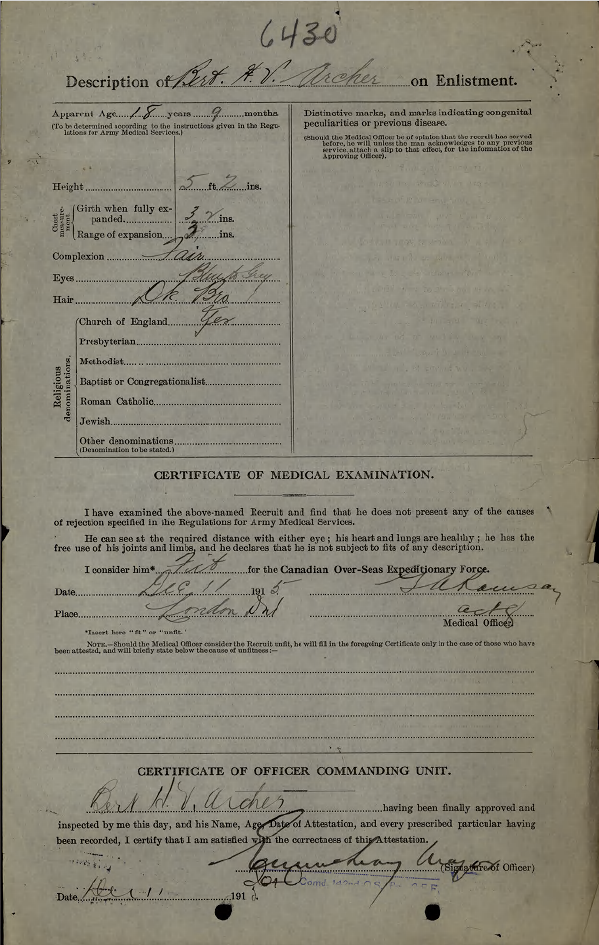 6430
Description of Bert. H. V. Archer on Enlistment.
Apparent Age 18 years 9 months
(To be determined according to the instructions given in the Regu-
lations for Army Medical Services.)
Height 5 ft 2 ins.
Chest measure-ment
Girth when fully ex-
panded 32 ins.
Range of expansion 3 ins.
Complexion Fair
Eyes
Hair Dk Bro
Religious denominations.
Church of England Yes
Presbyterian
Methodist
Baptist or Congregationalist
Roman Catholic
Jewish
Other denominations
(Denomination to be stated.)
Distinctive marks, and marks indicating congenital
peculiarities or previous disease.
(Should the Medical Officer be of opinion that the recruit has served
before, he will unless the man acknowledges to any previous
service, attach a slip to that effect, for the information of the
Approving Officer).
CERTIFICATE OF MEDICAL EXAMINATION.
I have examined the above-named Recruit and find that he does not present any of the causes
of rejection specified in the Regulations for Army Medical Services.
He can see at the required distance with either eye ; his heart and lungs are healthy ; he has the
free use of his joints and limbs, and he declares that he is not subject to fits of any description.
I consider him* Fit for the Canadian Over-Seas Expeditionary Force.
Date Dec 11 1915
Place London
Medical Officer
*Insert here "fit" or "unfit."
NOTE.—Should the Medical Officer consider the Recruit unfit, he will fill in the foregoing Certificate only in the case of those who have
been attested, and will briefly state below the cause of unfitness:—
CERTIFICATE OF OFFICER COMMANDING UNIT.
Bert H. V. Archer having been finally approved and
inspected by me this day, and his Name, Age, Date of Attestation, and every prescribed particular having
been recorded, I certify that I am satisfied with the correctness of this Attestation.
(Signature of Officer)
Date Dec 11 191